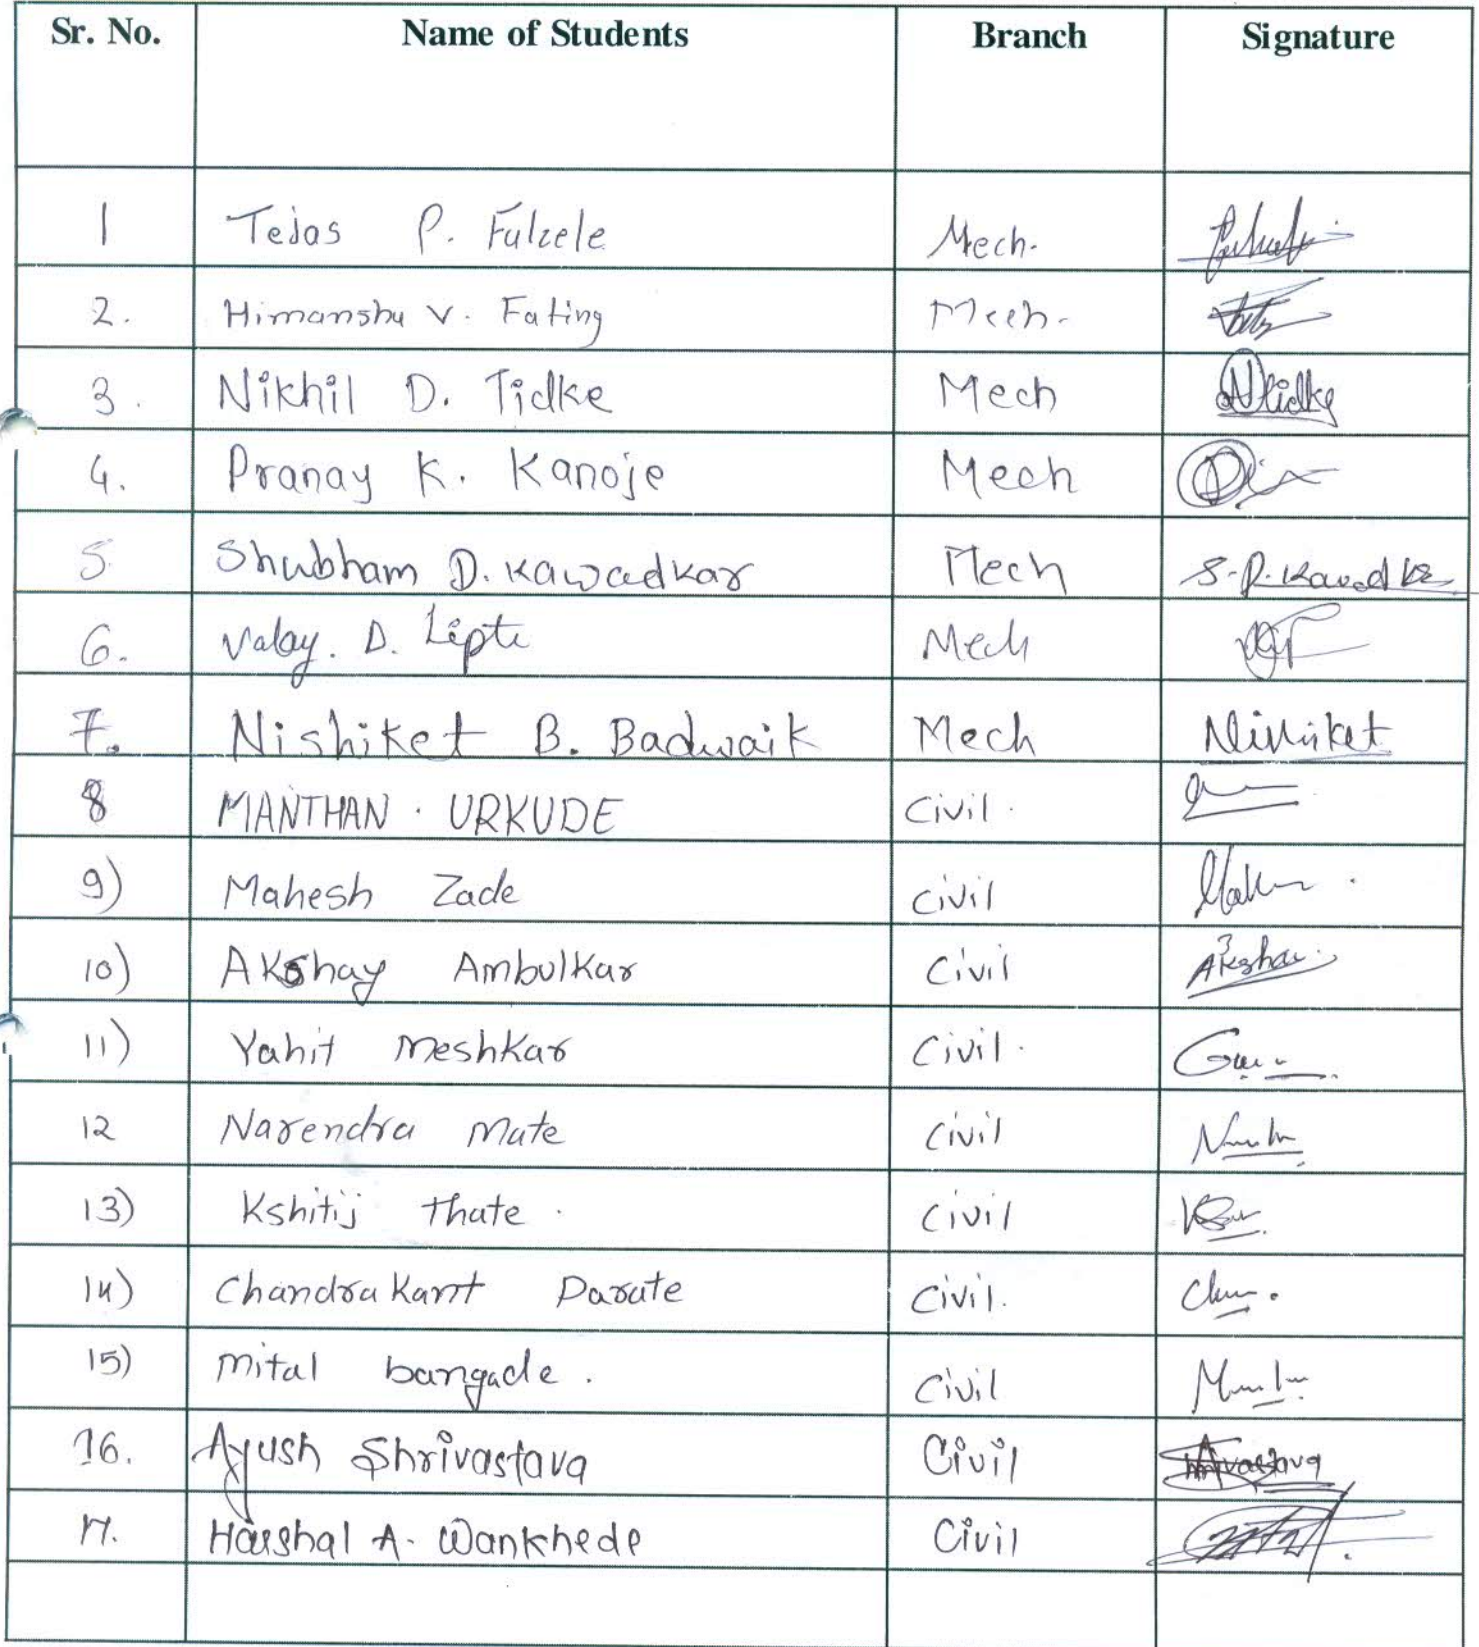 Sr. No. Name of Students Branch Signature
1 Tejas P. Fulzele Mech.
2. Himanshu V. Fating Mech.
3. Nikhil D. Tidke Mech Ntidke
4. Pranay K. Kanoje Mech
5. Shubham D. Kawadkar Mech
6. Valay. D. Lipte Mech
7. Nishiket B. Badwaik Mech
8 MANTHAN . URKUDE Civil.
9) Mahesh Zade civil
10) Akshay Ambulkar Civil Akshay
11) Yahit Meshkar Civil.
12 Narendra Mate Civil
13) Kshitij Thate. Civil
14) Chandrakant Parate Civil.
15) Mital bangade. Civil
16. Ayush Shrivastava Civil
17. Harshal A. Wankhede Civil